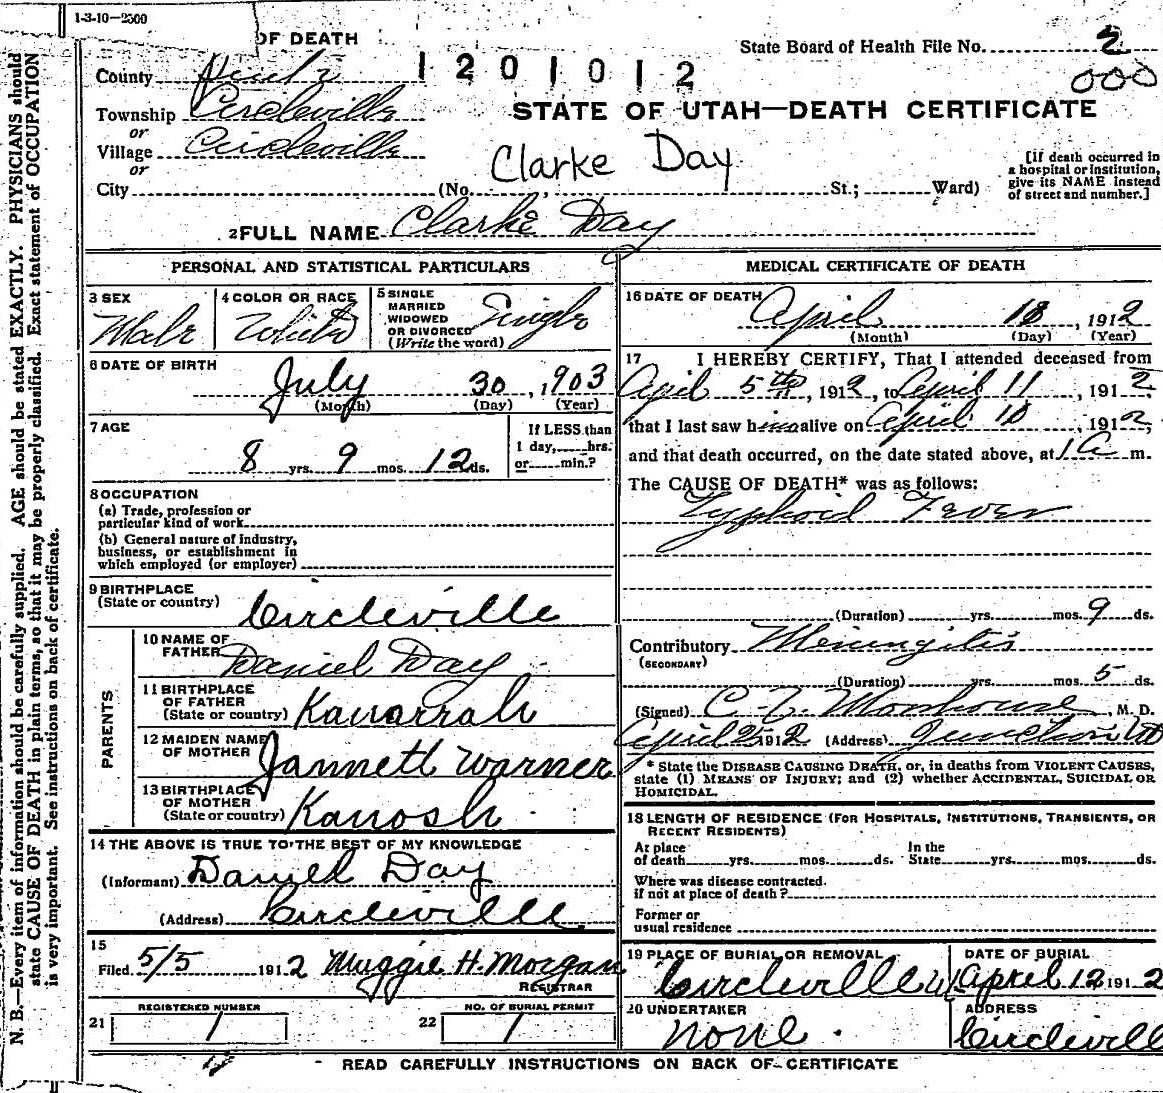 1-3-10-2500
OF DEATH
State Board of Health File No. 2
000
County
1201012
Township Circleville
or
STATE OF UTAH—DEATH CERTIFICATE
Village Circleville
or
Clarke Day
[If death occurred in a hospital or institution, give its NAME instead of street and number.]
City (No. , St.; Ward)
2 FULL NAME Clarke Day
PERSONAL AND STATISTICAL PARTICULARS
3 SEX Male
4 COLOR OR RACE White
5 SINGLE MARRIED WIDOWED OR DIVORCED (Write the word) Single
6 DATE OF BIRTH
July 30, 1903
(Month) (Day) (Year)
7 AGE
8 yrs. 9 mos. 12 ds.
If LESS than 1 day, hrs. or min.?
8 OCCUPATION
(a) Trade, profession or
particular kind of work
(b) General nature of industry,
business, or establishment in
which employed (or employer)
9 BIRTHPLACE
(State or country) Circleville
PARENTS
10 NAME OF
FATHER Daniel Day
11 BIRTHPLACE
OF FATHER
(State or country) Kanarrah
12 MAIDEN NAME
OF MOTHER Jannett Warner
13 BIRTHPLACE
OF MOTHER
(State or country) Kanosh
14 THE ABOVE IS TRUE TO THE BEST OF MY KNOWLEDGE
(Informant) Daniel Day
(Address) Circleville
15
Filed 5/5 1912 Maggie H. Morgan
REGISTRAR
REGISTERED NUMBER
21 1
NO. OF BURIAL PERMIT
22 1
MEDICAL CERTIFICATE OF DEATH
16 DATE OF DEATH
April , 1912
(Month) (Day) (Year)
17 I HEREBY CERTIFY, That I attended deceased from
April 5th, 1912, to April 11, 1912,
that I last saw him alive on April 10, 1912,
and that death occurred, on the date stated above, at 1 A m.
The CAUSE OF DEATH* was as follows:
Typhoid Fever
(Duration) yrs. mos. 9 ds.
Contributory Meningitis
(SECONDARY)
(Duration) yrs. mos. 5 ds.
(Signed) M. D.
April 25 1912 (Address) Junction Ut
* State the DISEASE CAUSING DEATH, or, in deaths from VIOLENT CAUSES,
state (1) MEANS OF INJURY; and (2) whether ACCIDENTAL, SUICIDAL OR
HOMICIDAL.
18 LENGTH OF RESIDENCE (FOR HOSPITALS, INSTITUTIONS, TRANSIENTS, OR
RECENT RESIDENTS)
At place of death yrs. mos. ds. In the State yrs. mos. ds.
Where was disease contracted.
if not at place of death?
Former or
usual residence
19 PLACE OF BURIAL OR REMOVAL
Circleville
DATE OF BURIAL
April 12 1912
20 UNDERTAKER
none.
ADDRESS
Circleville
READ CAREFULLY INSTRUCTIONS ON BACK OF CERTIFICATE
N. B.—Every item of information should be carefully supplied. AGE should be stated EXACTLY. PHYSICIANS should
state CAUSE OF DEATH in plain terms, so that it may be properly classified. Exact statement of OCCUPATION
is very important. See instructions on back of certificate.